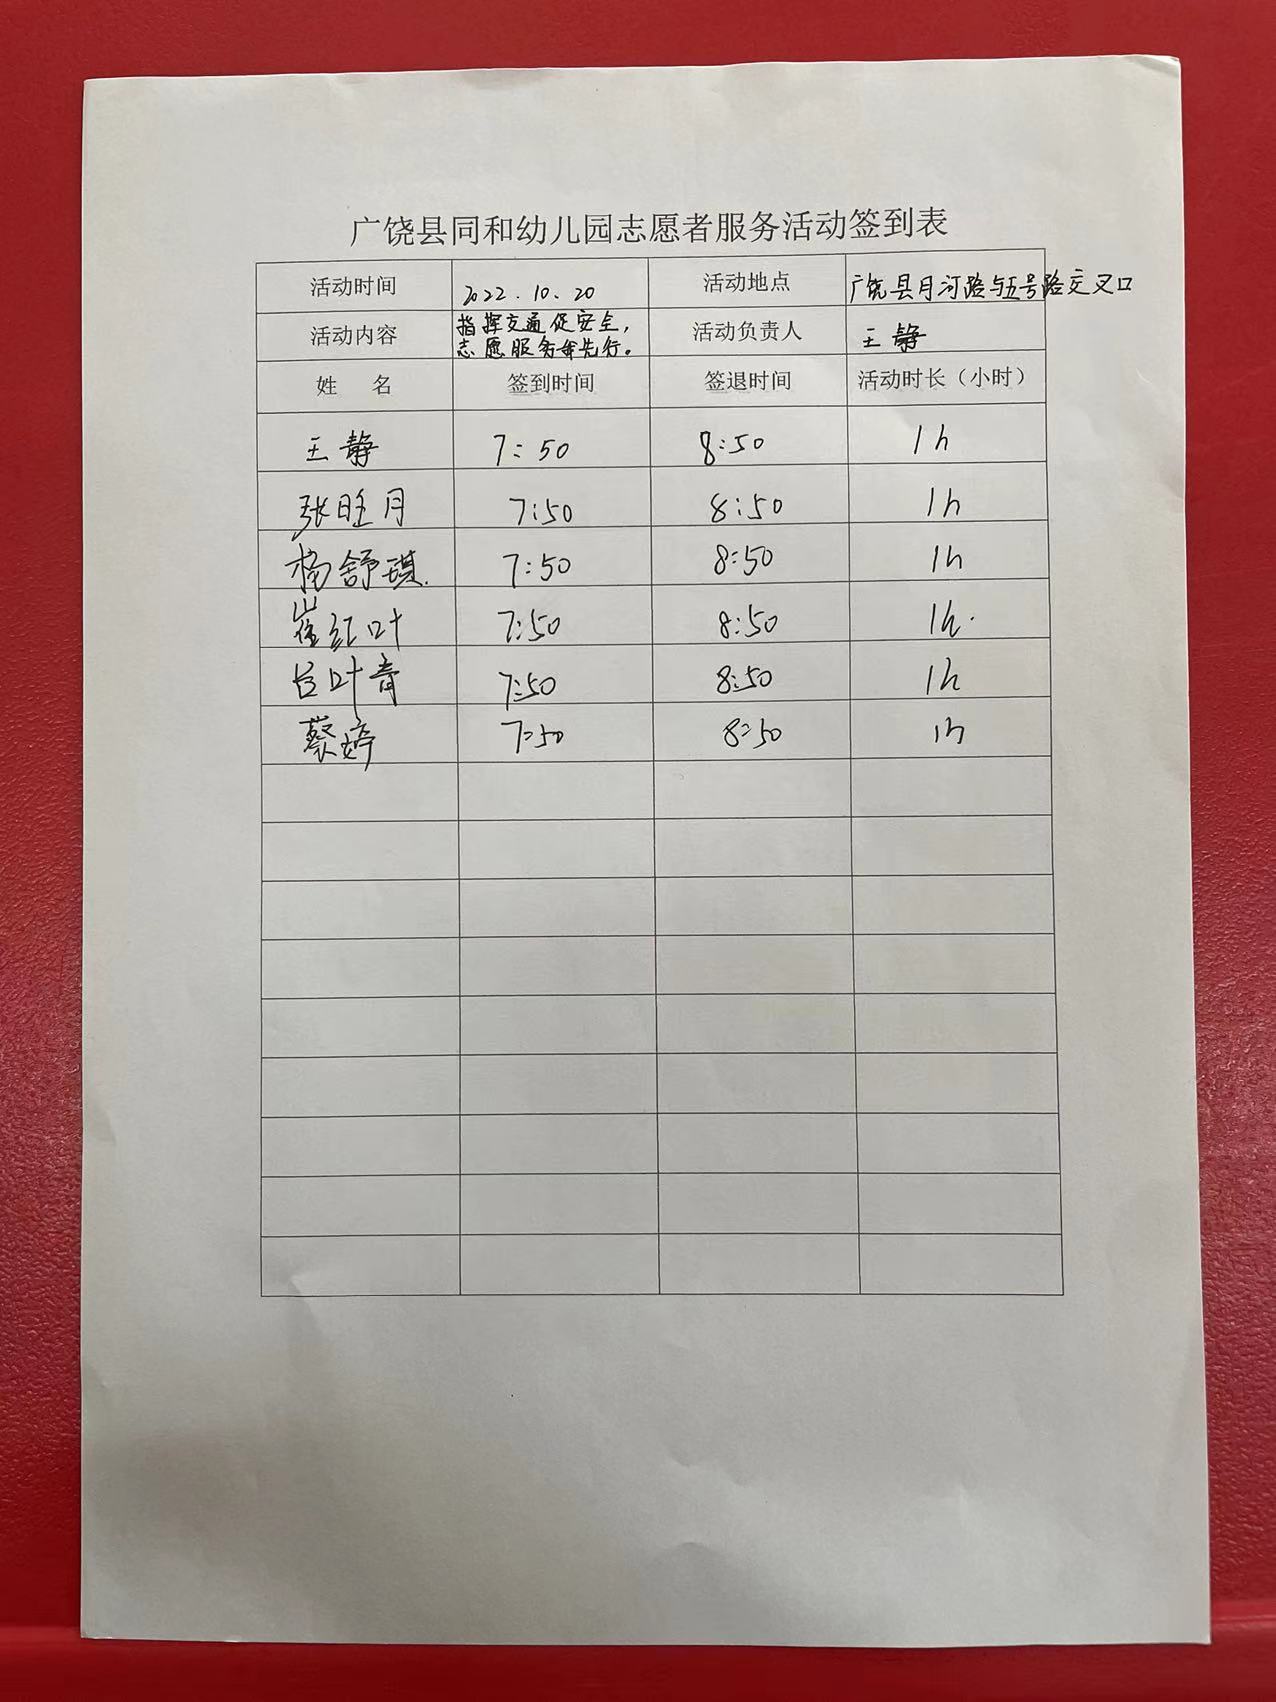 广饶县同和幼儿园志愿者服务活动签到表
活动时间 2022.10.20 活动地点 广饶县月河路与五号路交叉口
活动内容 指挥交通促安全，
志愿服务我先行。 活动负责人 王静
姓 名 签到时间 签退时间 活动时长（小时）
王静 7:50 8:50 1h
张旺月 7:50 8:50 1h
杨舒琪. 7:50 8:50 1h
崔红叶 7:50 8:50 1h.
吕叶青 7:50 8:50 1h
蔡婷 7:50 8:50 1h